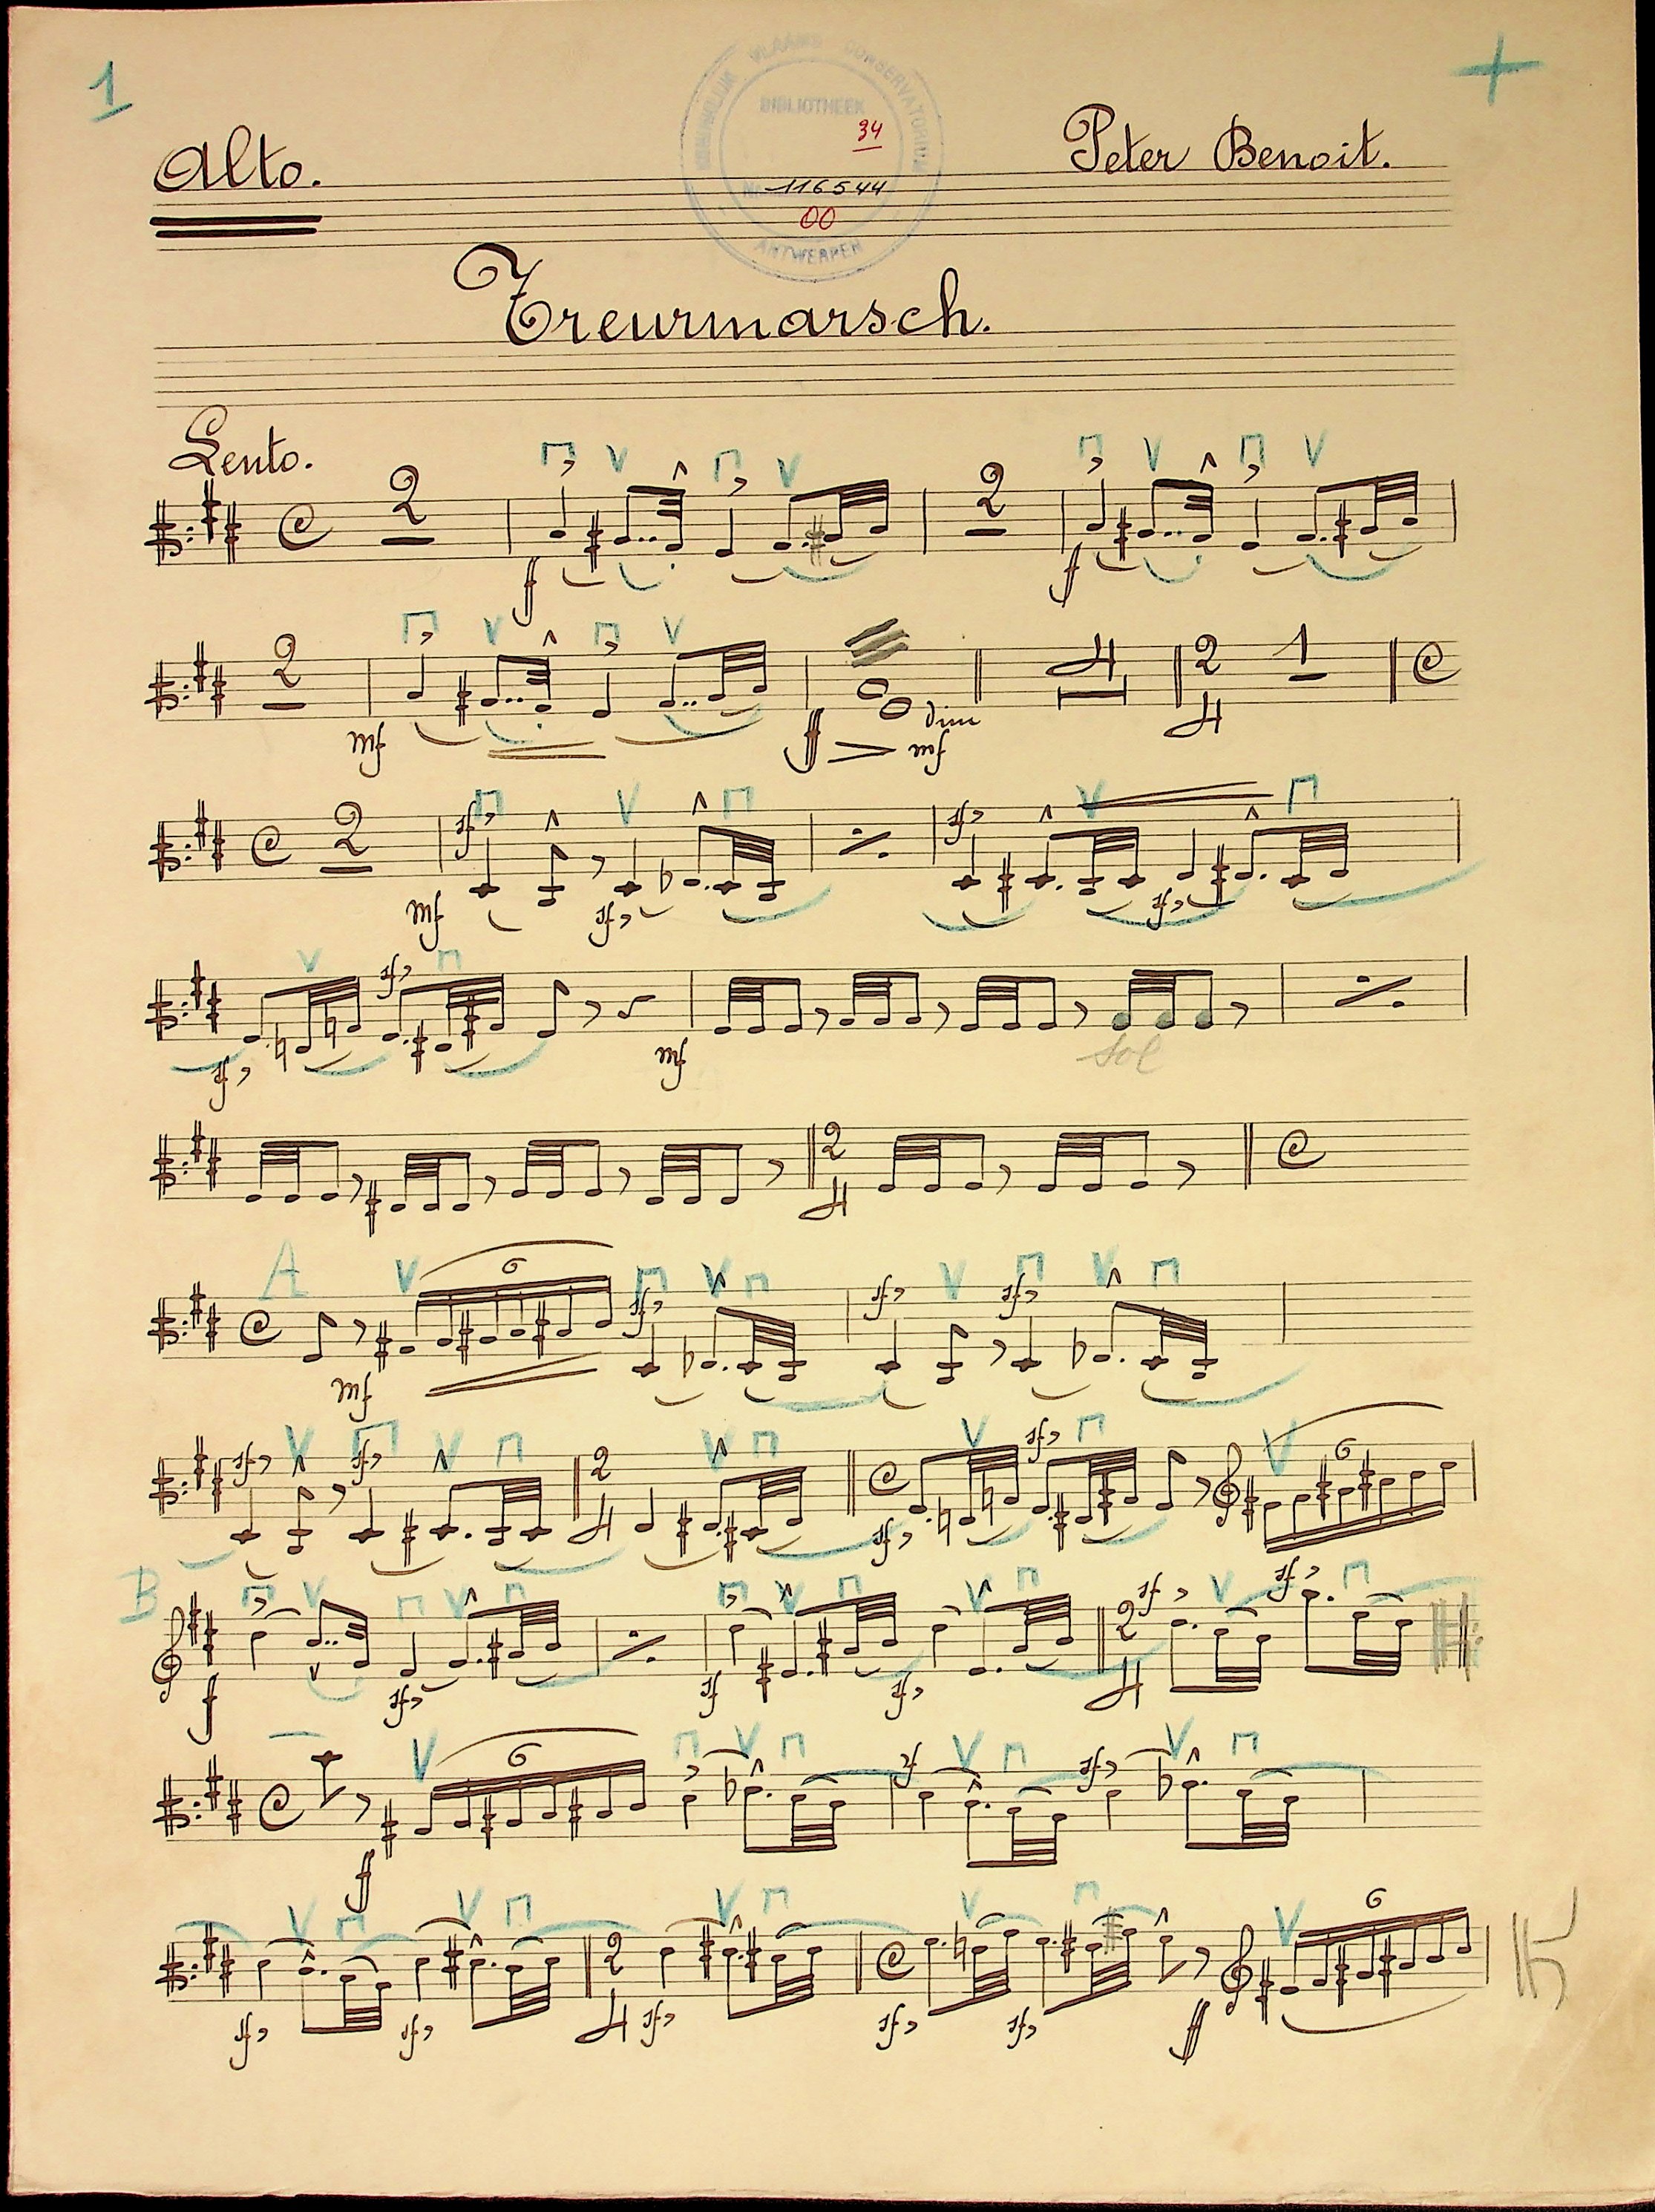 1
KONINKLIJK VLAAMS CONSERVATORIUM
BIBLIOTHEEK
34
116544
00
ANTWERPEN
Alto.
Peter Benoit.
Treurmarsch.
Lento.
2 2
f f
2 4 2 4 1
mf ff mf dim
2 sf sf
mf sf sf
sf
sf mf
sol
2 4
A 6 sf sf sf
mf
sf sf 2 4 sf 6
sf
B 2 4 sf sf
f sf sf sf
6 sf sf
ff
2 4 6
sf sf sf sf sf ff